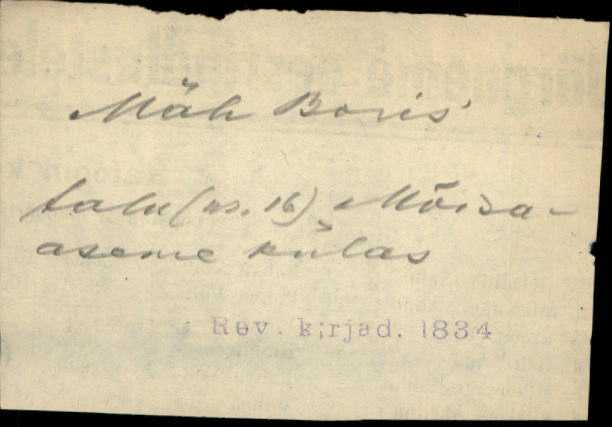 Mäh Boris
talu (nr. 16) Mõisa-
aseme külas
Rev. kirjad. 1834